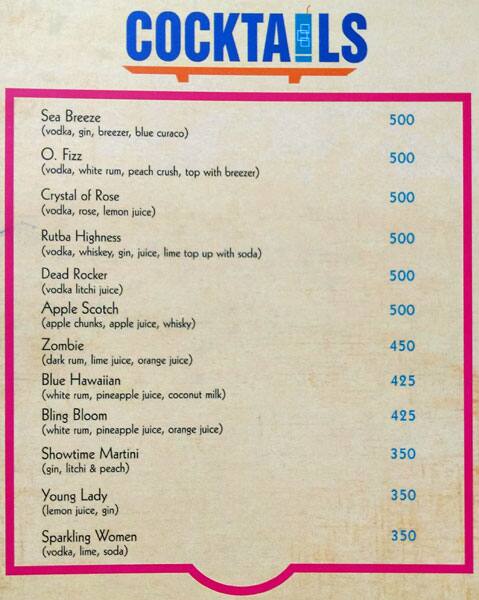 COCKTAILS
Sea Breeze 500
(vodka, gin, breezer, blue curaco)
O. Fizz 500
(vodka, white rum, peach crush, top with breezer)
Crystal of Rose 500
(vodka, rose, lemon juice)
Rutba Highness 500
(vodka, whiskey, gin, juice, lime top up with soda)
Dead Rocker 500
(vodka litchi juice)
Apple Scotch 500
(apple chunks, apple juice, whisky)
Zombie 450
(dark rum, lime juice, orange juice)
Blue Hawaiian 425
(white rum, pineapple juice, coconut milk)
Bling Bloom 425
(white rum, pineapple juice, orange juice)
Showtime Martini 350
(gin, litchi & peach)
Young Lady 350
(lemon juice, gin)
Sparkling Women 350
(vodka, lime, soda)